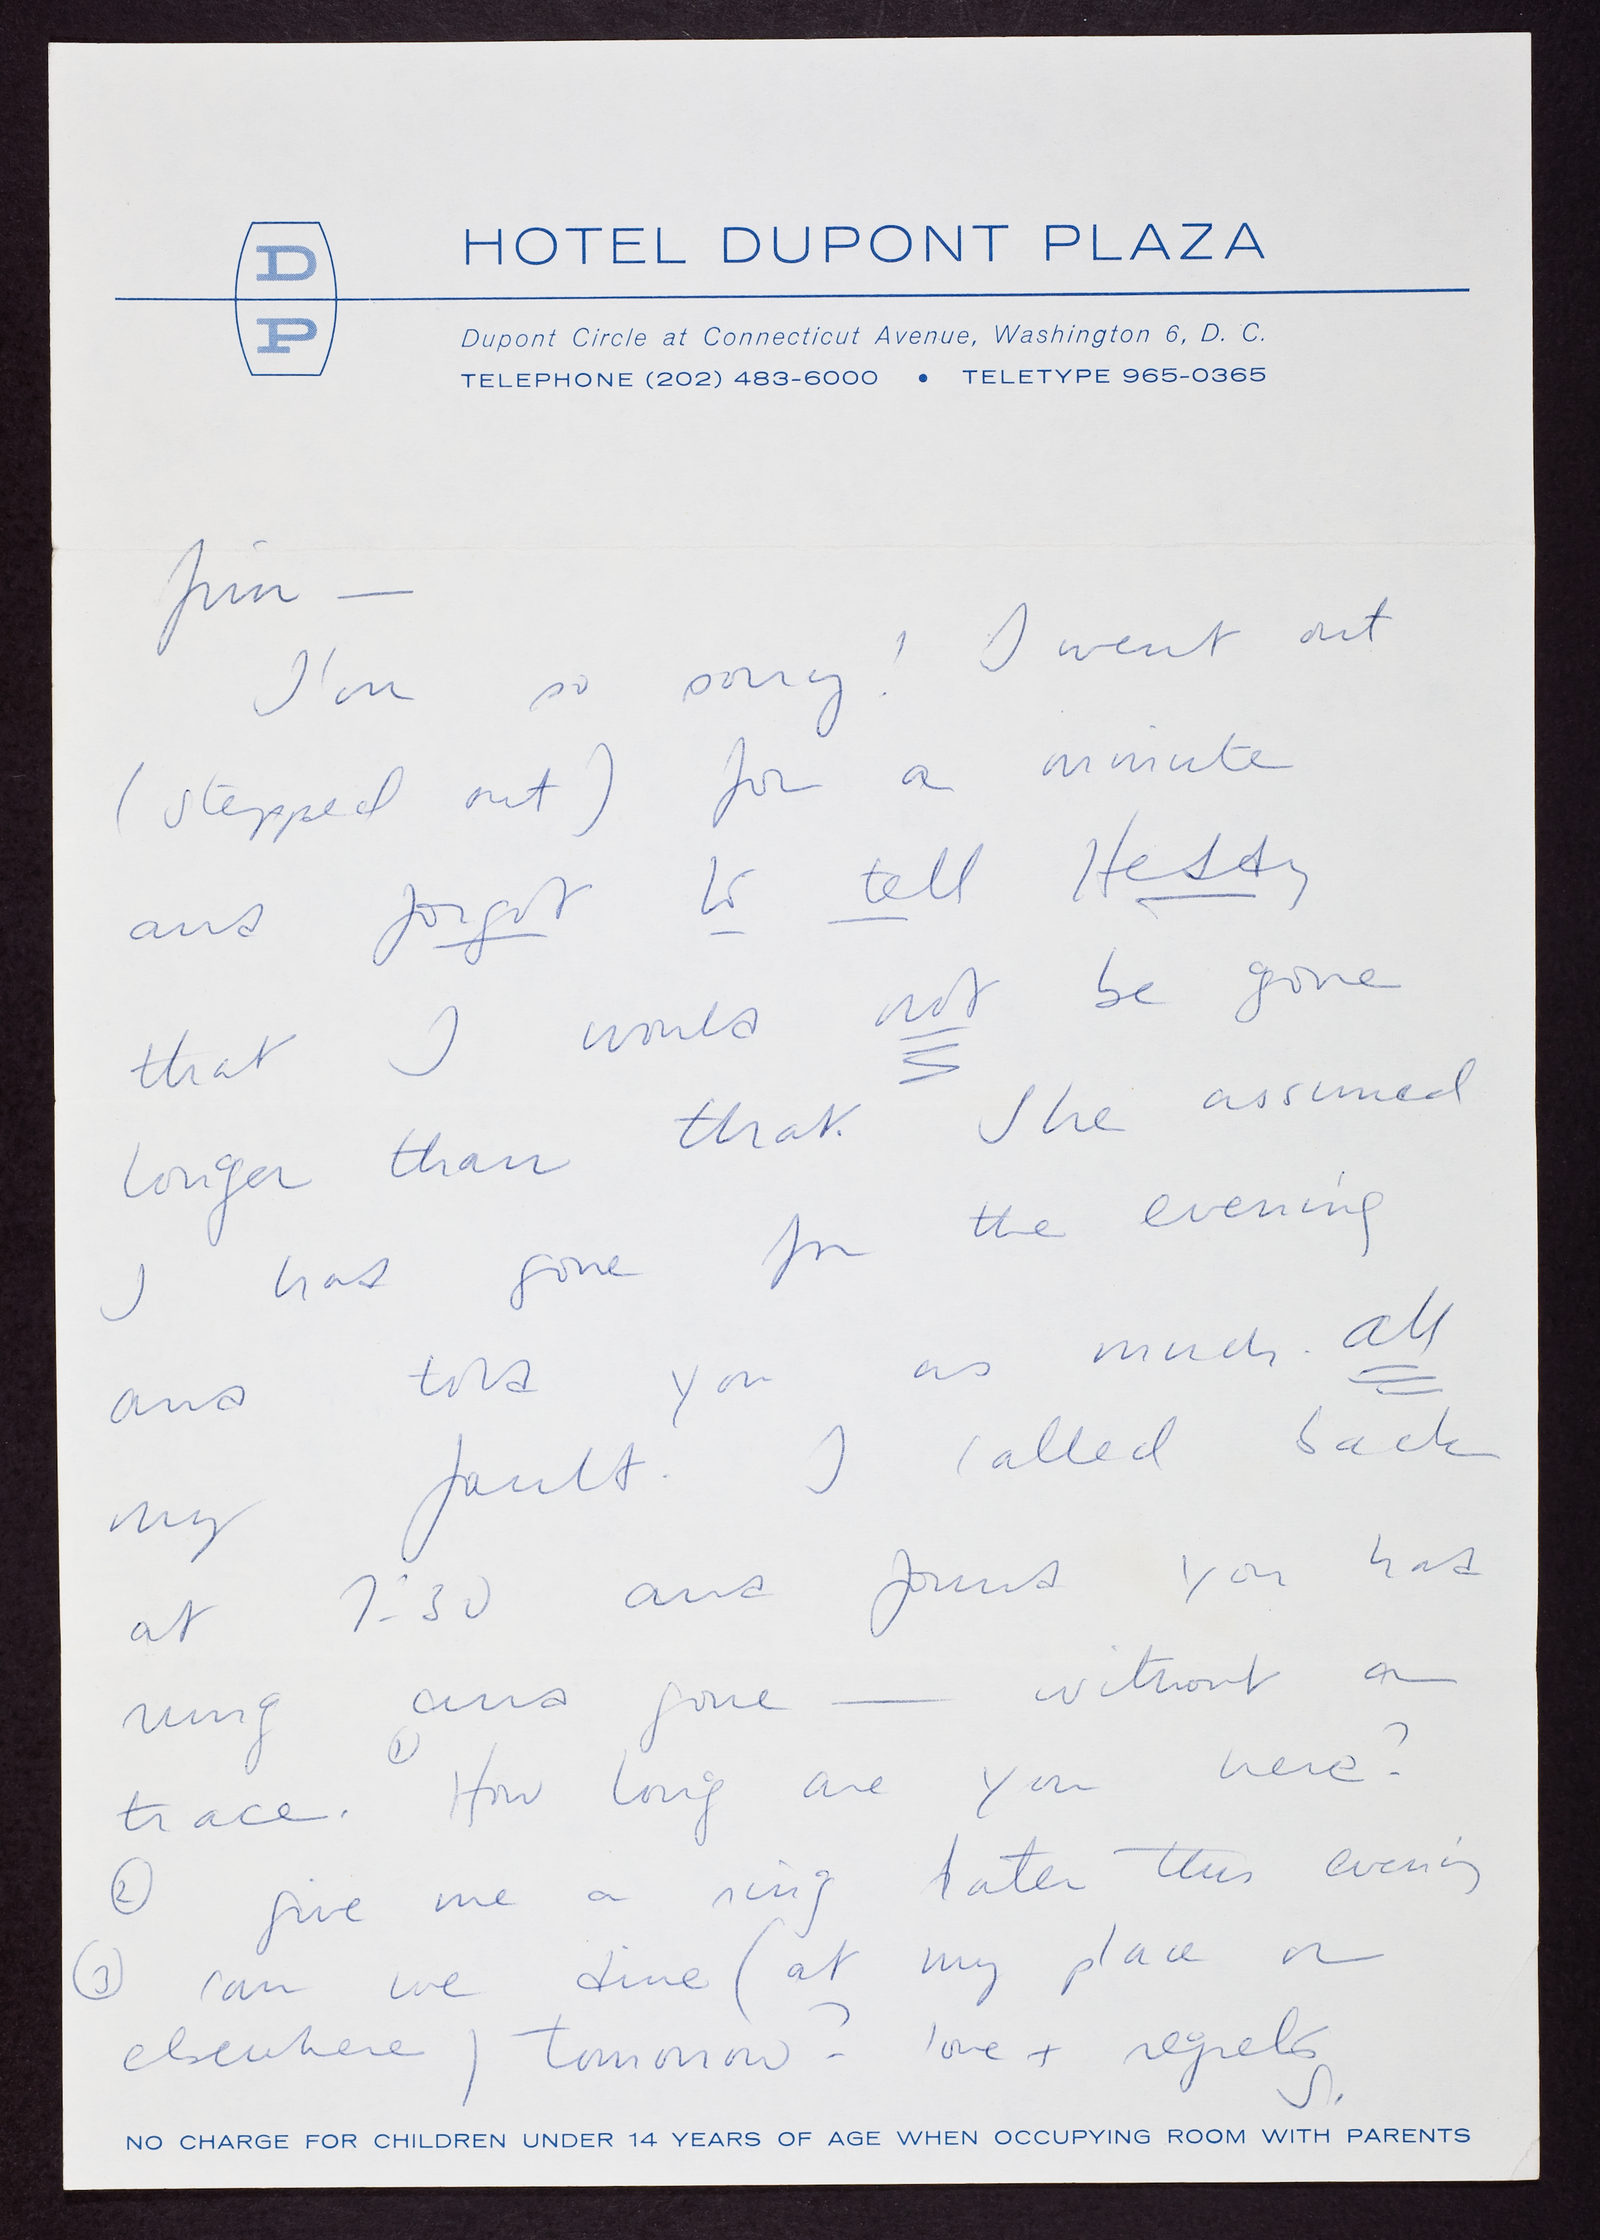 D
P
HOTEL DUPONT PLAZA
Dupont Circle at Connecticut Avenue, Washington 6, D. C.
TELEPHONE (202) 483-6000 • TELETYPE 965-0365
Jim —
I'm so sorry! I went out
(stepped out) for a minute
and forgot to tell Hetty
that I would not be gone
longer than that. She assumed
I had gone for the evening
and told you as much. All
my fault. I called back
at 7:30 and found you had
rung and gone — without a
trace. ① How long are you here?
② give me a ring later this evening
③ can we dine (at my place or
elsewhere) tomorrow? love + regrets
S.
NO CHARGE FOR CHILDREN UNDER 14 YEARS OF AGE WHEN OCCUPYING ROOM WITH PARENTS